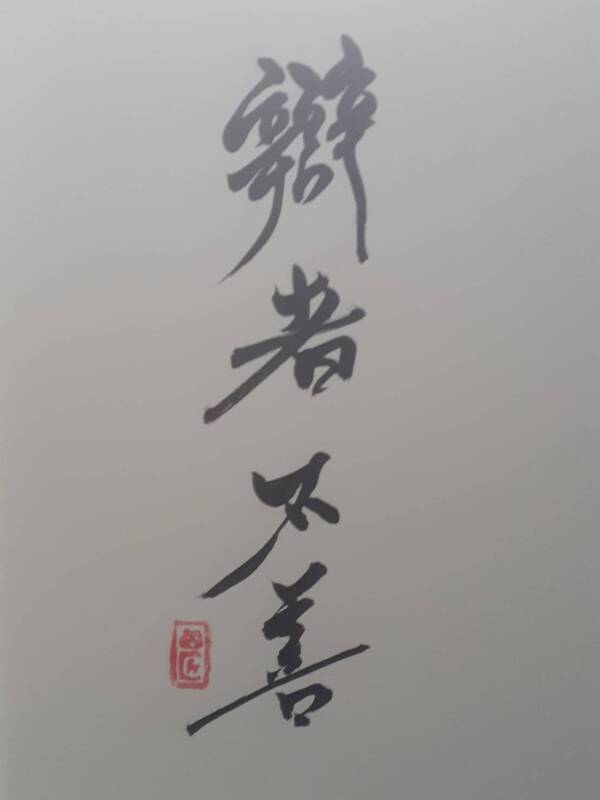 辯者不善